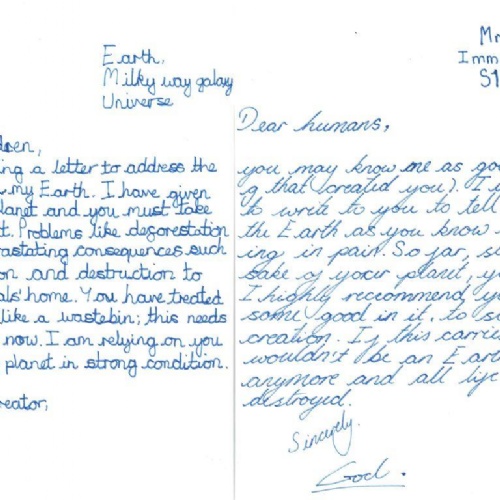 Earth,
Milky way galaxy
Universe
dren,
ing a letter to address the
my Earth. I have given
lanet and you must take
t. Problems like deforestation
vastating consequences such
on and destruction to
als' home. You have treated
like a wastebin; this needs
now. I am relying on you
planet in strong condition.
reator,
Mr
Imm
S1
Dear humans,
you may know me as go
g that created you). I
to write to you to tell
the Earth as you know
ing in pain. So far, si
sake of your planet, y
I highly reccommend yo
some good in it, to s
creation. If this carri
wouldn't be an Eart
anymore and all life
destroyed.
Sincerly.
God.